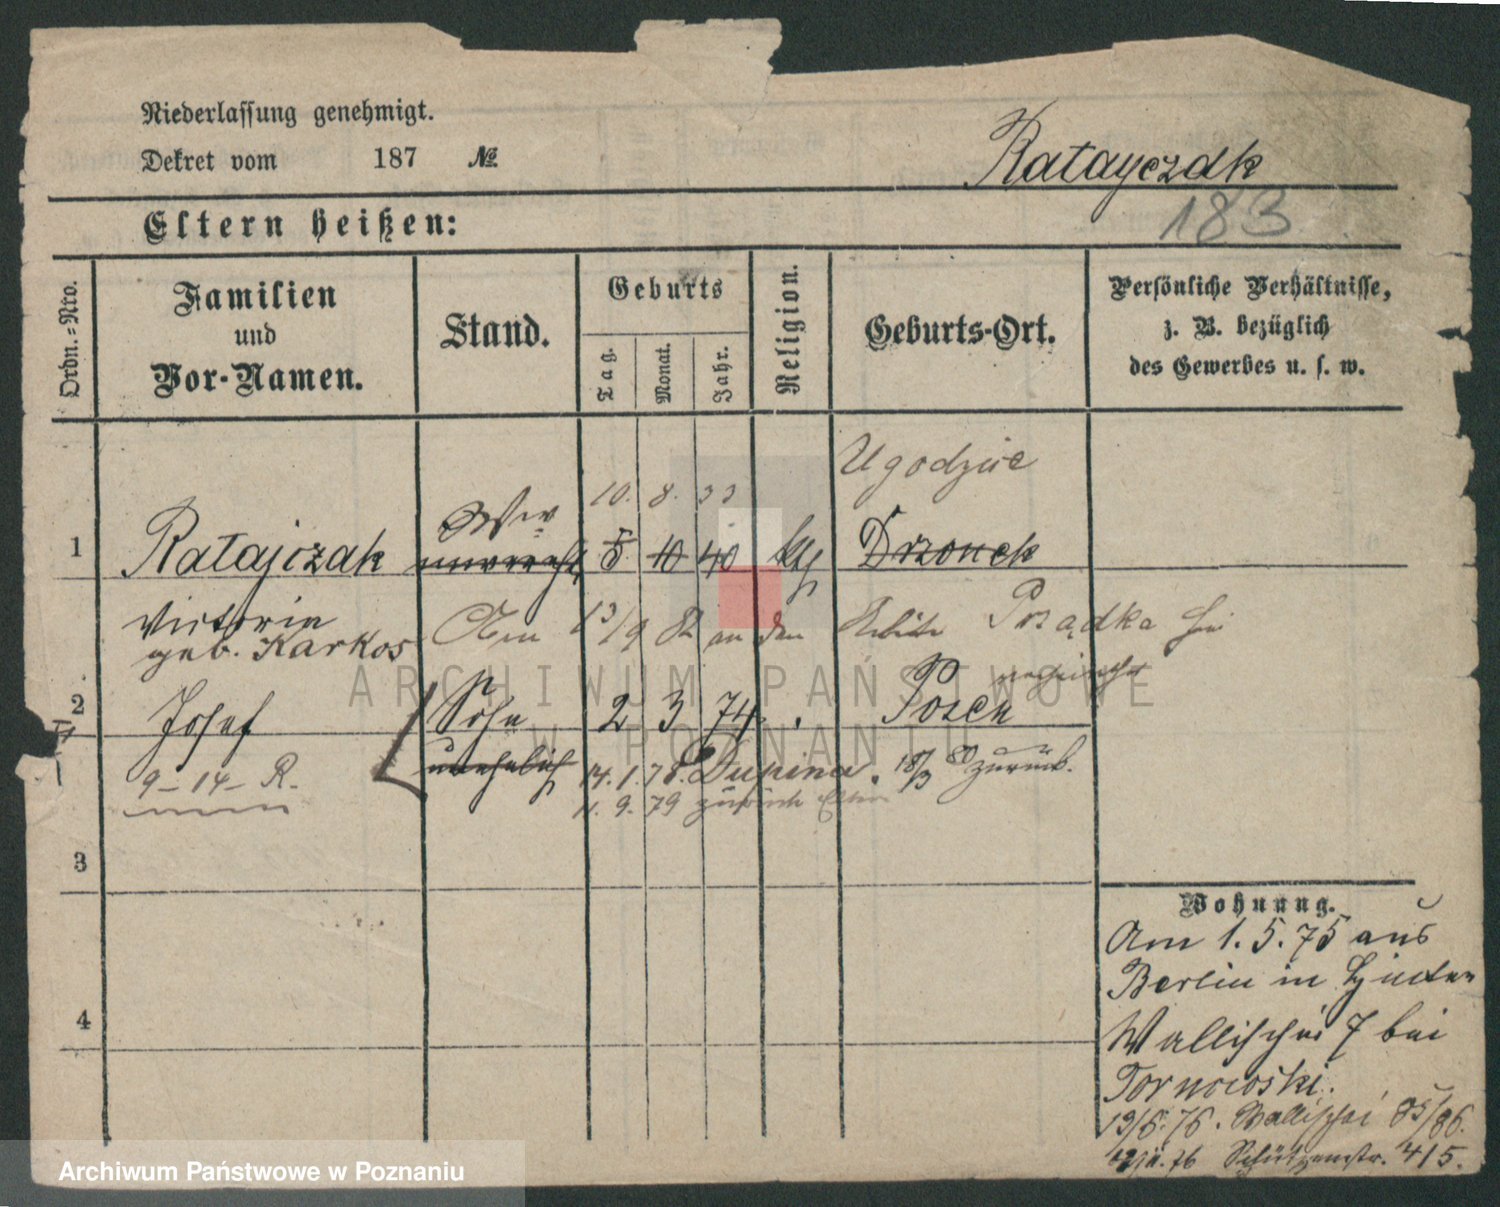 Niederlassung genehmigt.
Dekret vom 187 №
Ratayczak
183
Eltern heißen:
Ordn.=Nro.
Familien
und
Vor-Namen.
Stand.
Geburts
Tag.
Monat.
Jahr.
Religion.
Geburts-Ort.
Persönliche Verhältnisse,
z. B. bezüglich
des Gewerbes u. s. w.
Ugodzie
10. 8. 33
Wwe
1 Ratajczak 5 10 40 kth Drzonek
Victoria
geb. Karkos
Am 13/9 82 an den Posadka
2 Josef Sohn 2 3 74 Posen
unehelich
9-14- R.
14. 1. 78. Dupina. 18/3 80 zurück.
11. 9. 79 zurück
3
4
Wohnung.
Am 1. 5. 75 aus
Berlin in Hinter
Wallischei 7 bei
Tornowski.
19/5. 76. Wallischei 85/86.
76 Schützenstr. 4/5.
ARCHIWUM PAŃSTWOWE
W POZNANIU
Archiwum Państwowe w Poznaniu